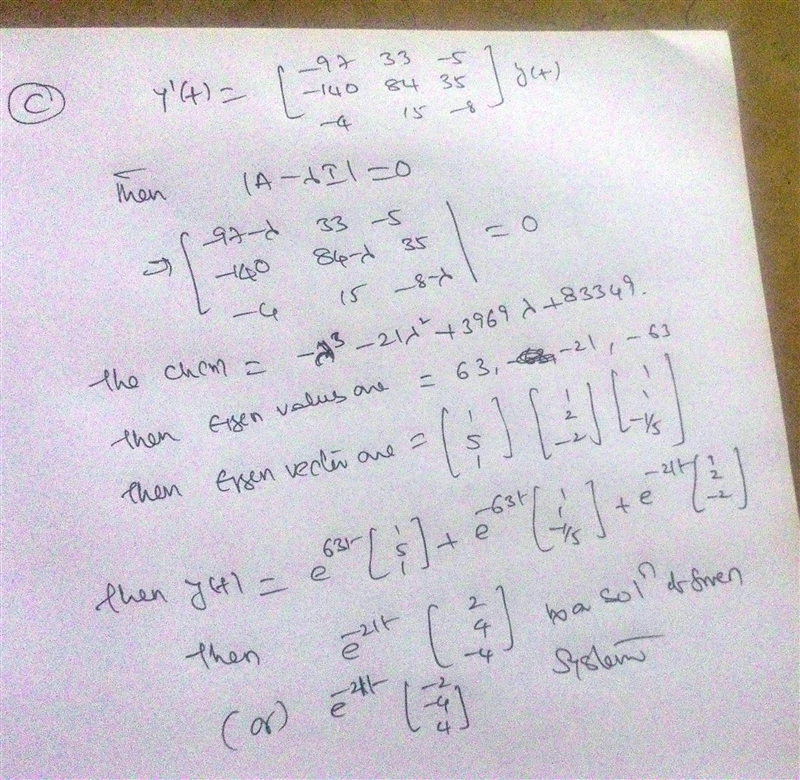 C
y'(t) = [ -97 33 -5
-140 84 35
-4 15 -8 ] y(t)
Then |A - λI| = 0
⇒ [ -97-λ 33 -5
-140 84-λ 35
-4 15 -8-λ | = 0
the chcm = -λ³ - 21λ² + 3969 λ + 83349.
then Eigen values are = 63, -21, -63
then Eigen vector are = ( 1 5 1 ] ( 1 2 -2 ] ( 1 1 -1/5 ]
then y(t) = e^63t [ 1 5 1 ] + e^-63t ( 1 1 -1/5 ] + e^-21t ( 1 2 -2 ]
then e^-21t [ 2 4 -4 ] is a solⁿ of given
System
(or) e^-21t [ -2 -4 4 ]